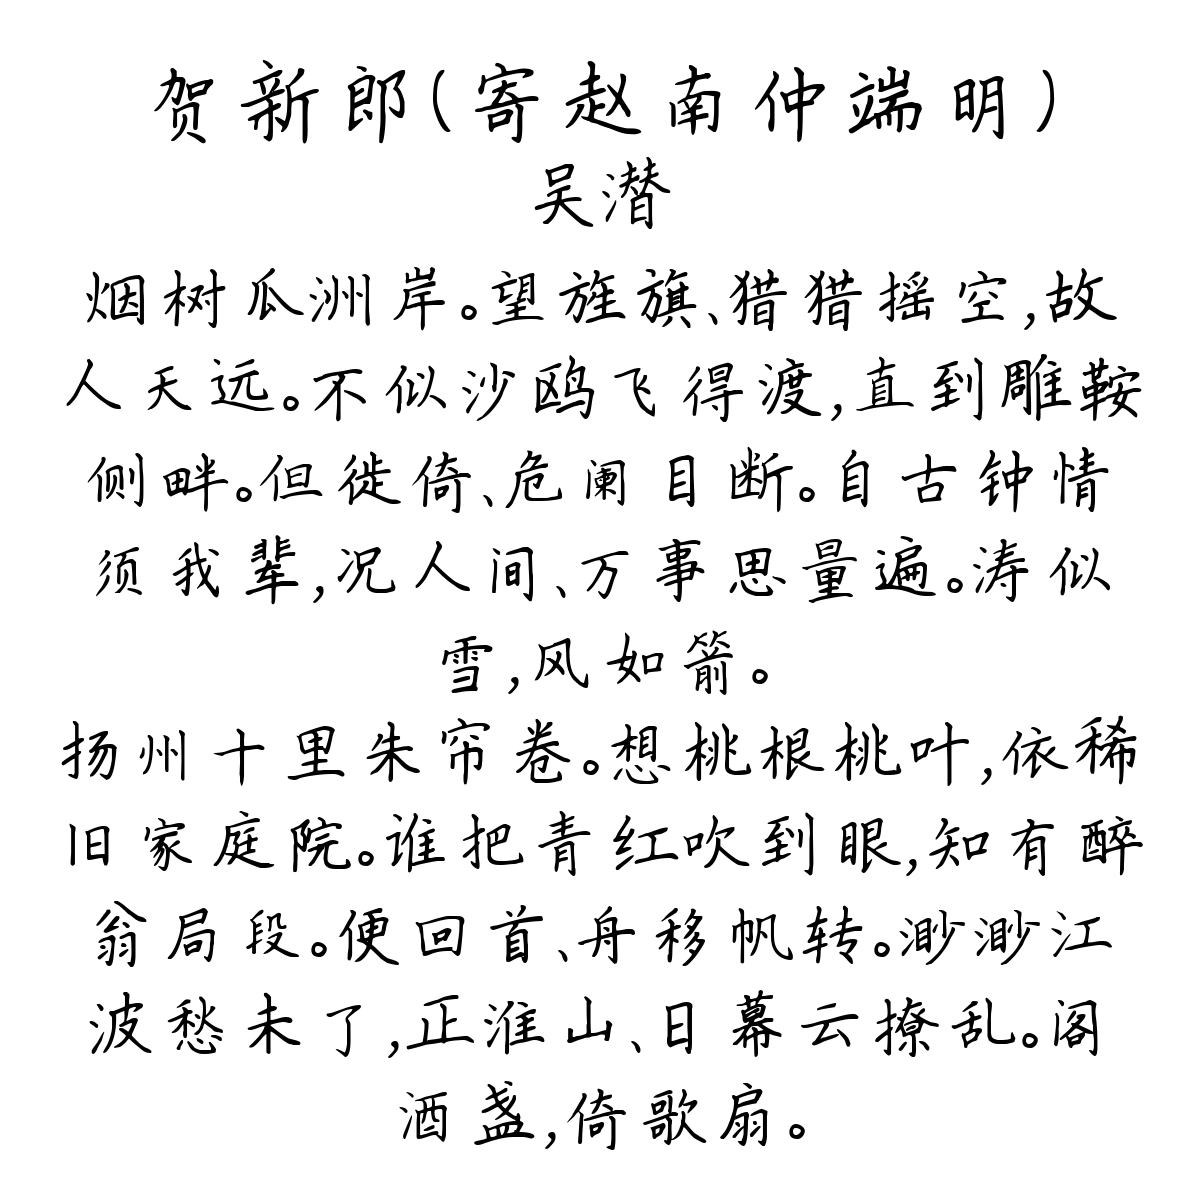 贺新郎(寄赵南仲端明)
吴潜
烟树瓜洲岸。望旌旗、猎猎摇空,故
人天远。不似沙鸥飞得渡,直到雕鞍
侧畔。但徙倚、危阑目断。自古钟情
须我辈,况人间、万事思量遍。涛似
雪,风如箭。
扬州十里朱帘卷。想桃根桃叶,依稀
旧家庭院。谁把青红吹到眼,知有醉
翁局段。便回首、舟移帆转。渺渺江
波愁未了,正淮山、日暮云撩乱。阁
酒盏,倚歌扇。